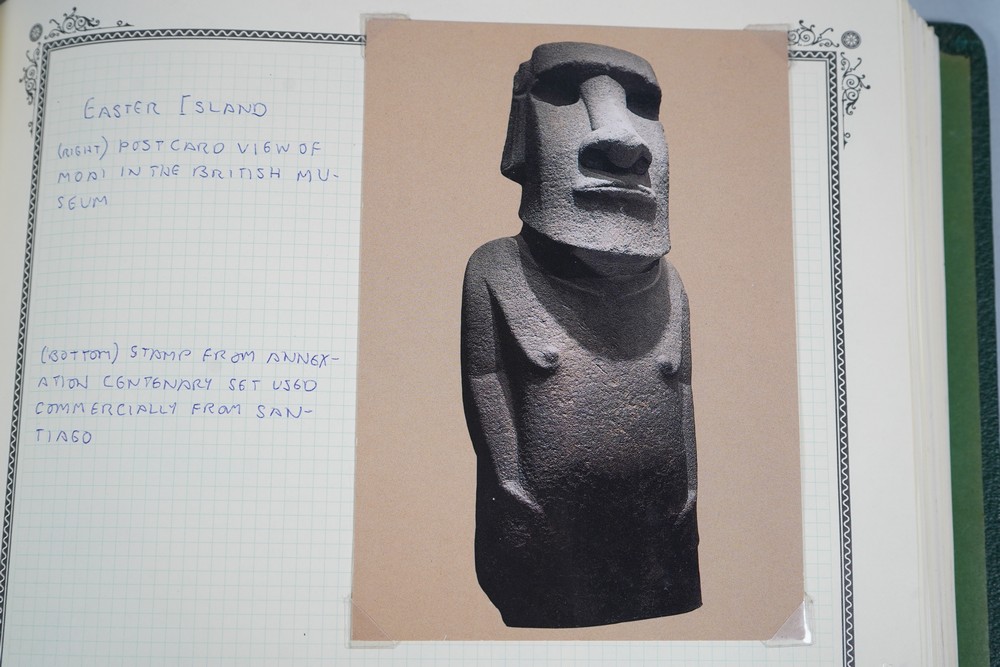 EASTER ISLAND
(RIGHT) POSTCARD VIEW OF
MOAI IN THE BRITISH MU-
SEUM
(BOTTOM) STAMP FROM ANNEX-
ATION CENTENARY SET USED
COMMERCIALLY FROM SAN-
TIAGO